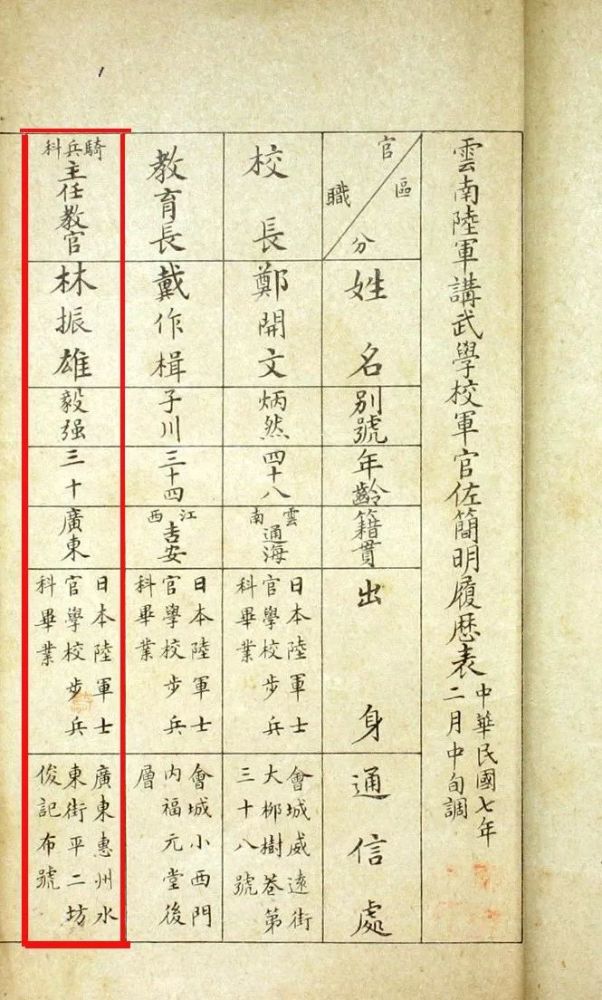 雲南陸軍講武學校軍官佐簡明履歷表
中華民國七年
二月中旬調
官區
職分
姓名
別號
年齡
籍貫
出身
通信處
校長
鄭開文
炳然
四十八
雲南
通海
日本陸軍士
官學校步兵
科畢業
會城威遠街
大柳樹巷第
三十八號
教育長
戴作楫
子川
三十四
江西
吉安
日本陸軍士
官學校步兵
科畢業
會城小西門
內福元堂後
層
騎兵科
主任教官
林振雄
毅强
三十
廣東
日本陸軍士
官學校步兵
科畢業
廣東惠州水
東街平二坊
俊記布號